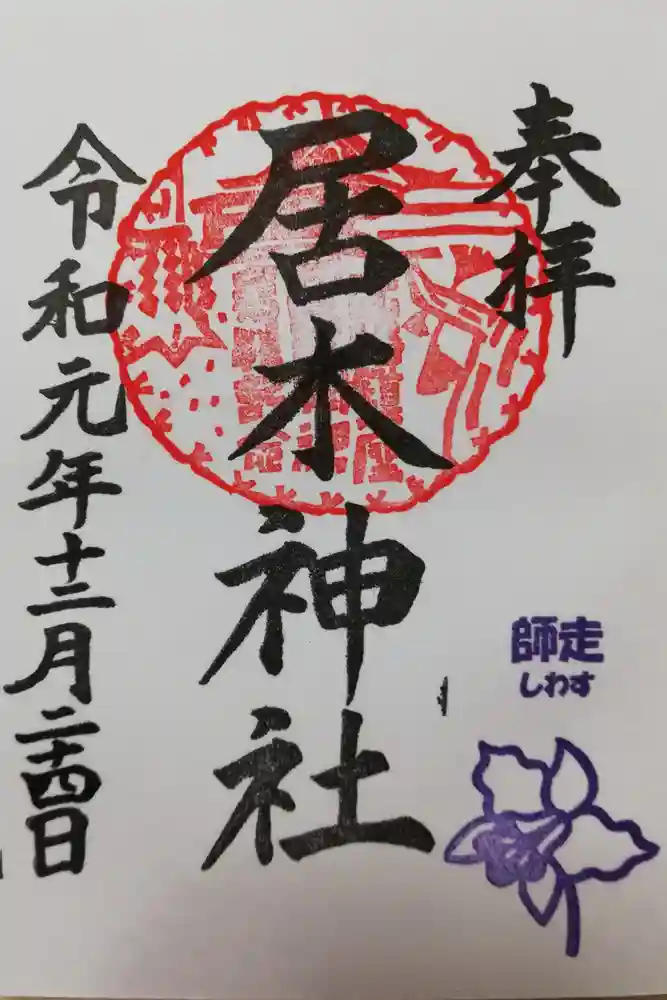 奉拝
居木神社
令和元年十二月二十四日
師走
しわす